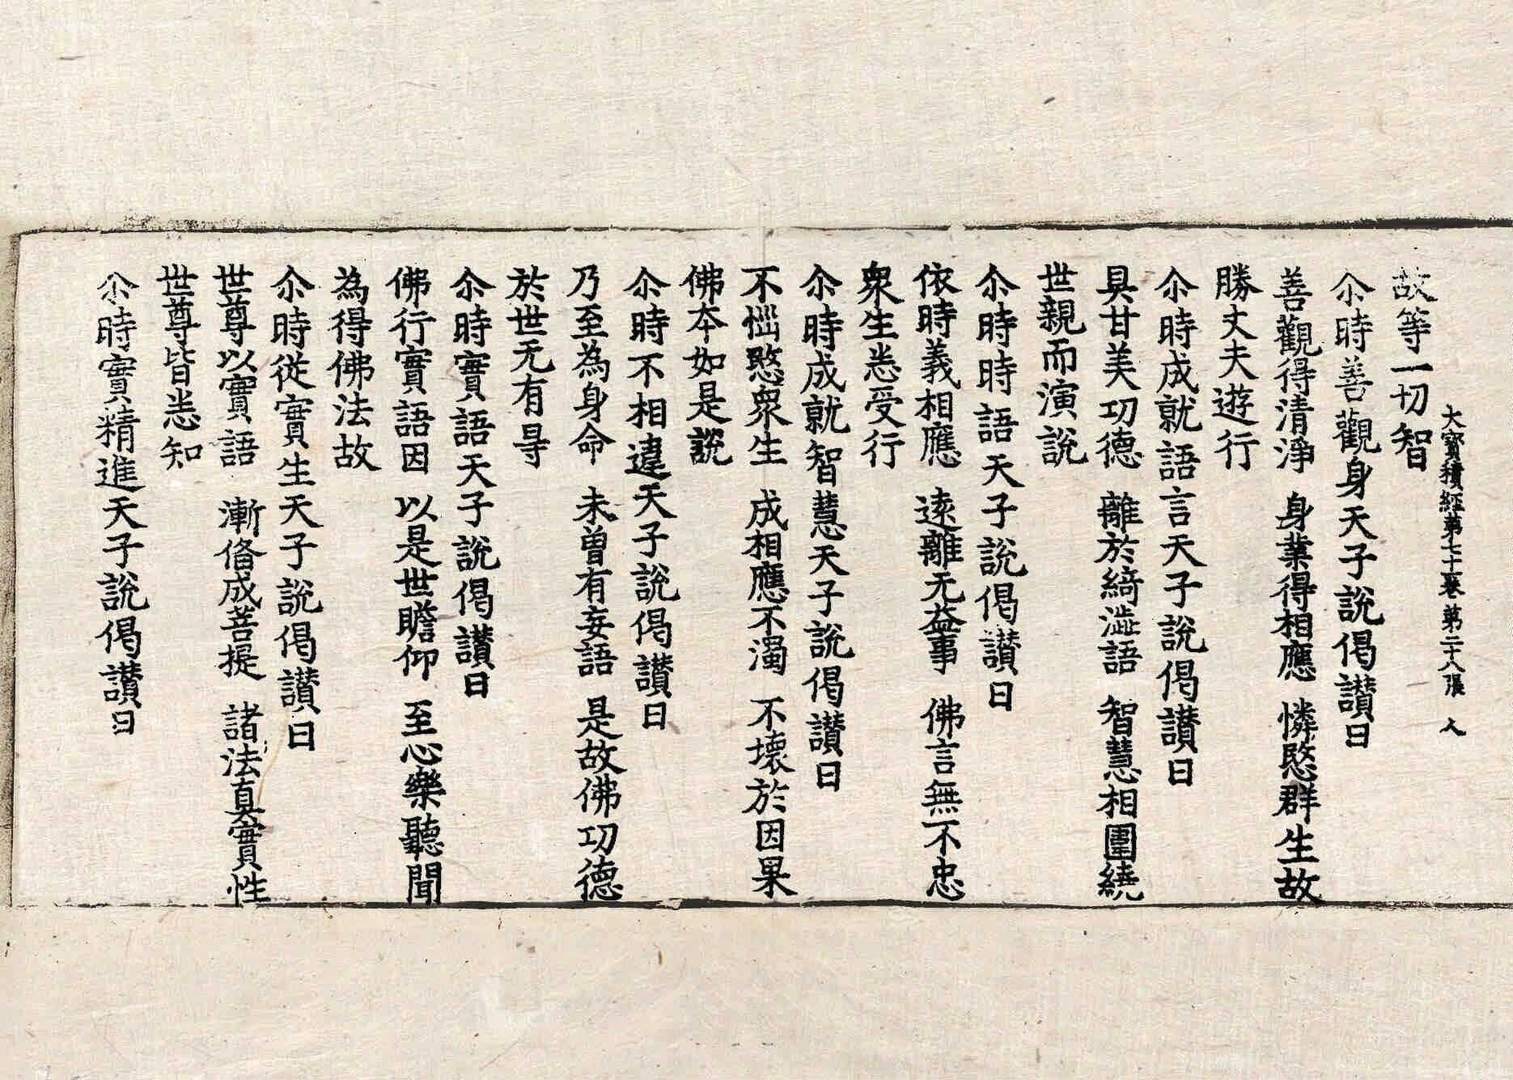 大寶積經第七十卷 第二十八張 人
故等一切智
尒時善觀身天子說偈讃曰
善觀得清淨 身業得相應 憐愍群生故
勝丈夫遊行
尒時成就語言天子說偈讃曰
具甘美功德 離於綺澁語 智慧相圍繞
世親而演說
尒時時語天子說偈讃曰
依時義相應 遠離无益事 佛言無不忠
衆生悉受行
尒時成就智慧天子說偈讃曰
不惱愍衆生 成相應不濁 不壞於因果
佛夲如是說
尒時不相違天子說偈讃曰
乃至為身命 未曾有妄語 是故佛功德
於世无有㝵
尒時實語天子說偈讃曰
佛行實語因 以是世瞻仰 至心樂聽聞
為得佛法故
尒時從實生天子說偈讃曰
世尊以實語 漸脩成菩提 諸法真實性
世尊皆悉知
尒時實精進天子說偈讃曰